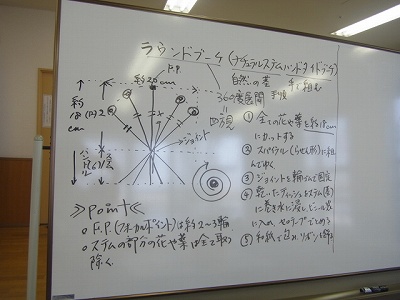 ラウンドブーケ(ナチュラルステムハンドタイドブーケ)
自然の茎 手で組む
F.P.
約20cm
360度展開 手順
四方見
約18cm
ジョイント
① 全ての花や葉を約18cm
にカットする
② スパイラル(らせん形)に組
んでゆく
③ ジョイントを輪ゴムで固定
④ 乾いたティッシュをステム(茎)
に巻き水に浸し、ビニール袋
に入れ、セロテープでとめる
⑤ 和紙で包み、リボンを
≫Point≪
○ F.P.(フォーカルポイント)は約2~3輪
○ ステムの部分の花や葉は全て取り
除く。